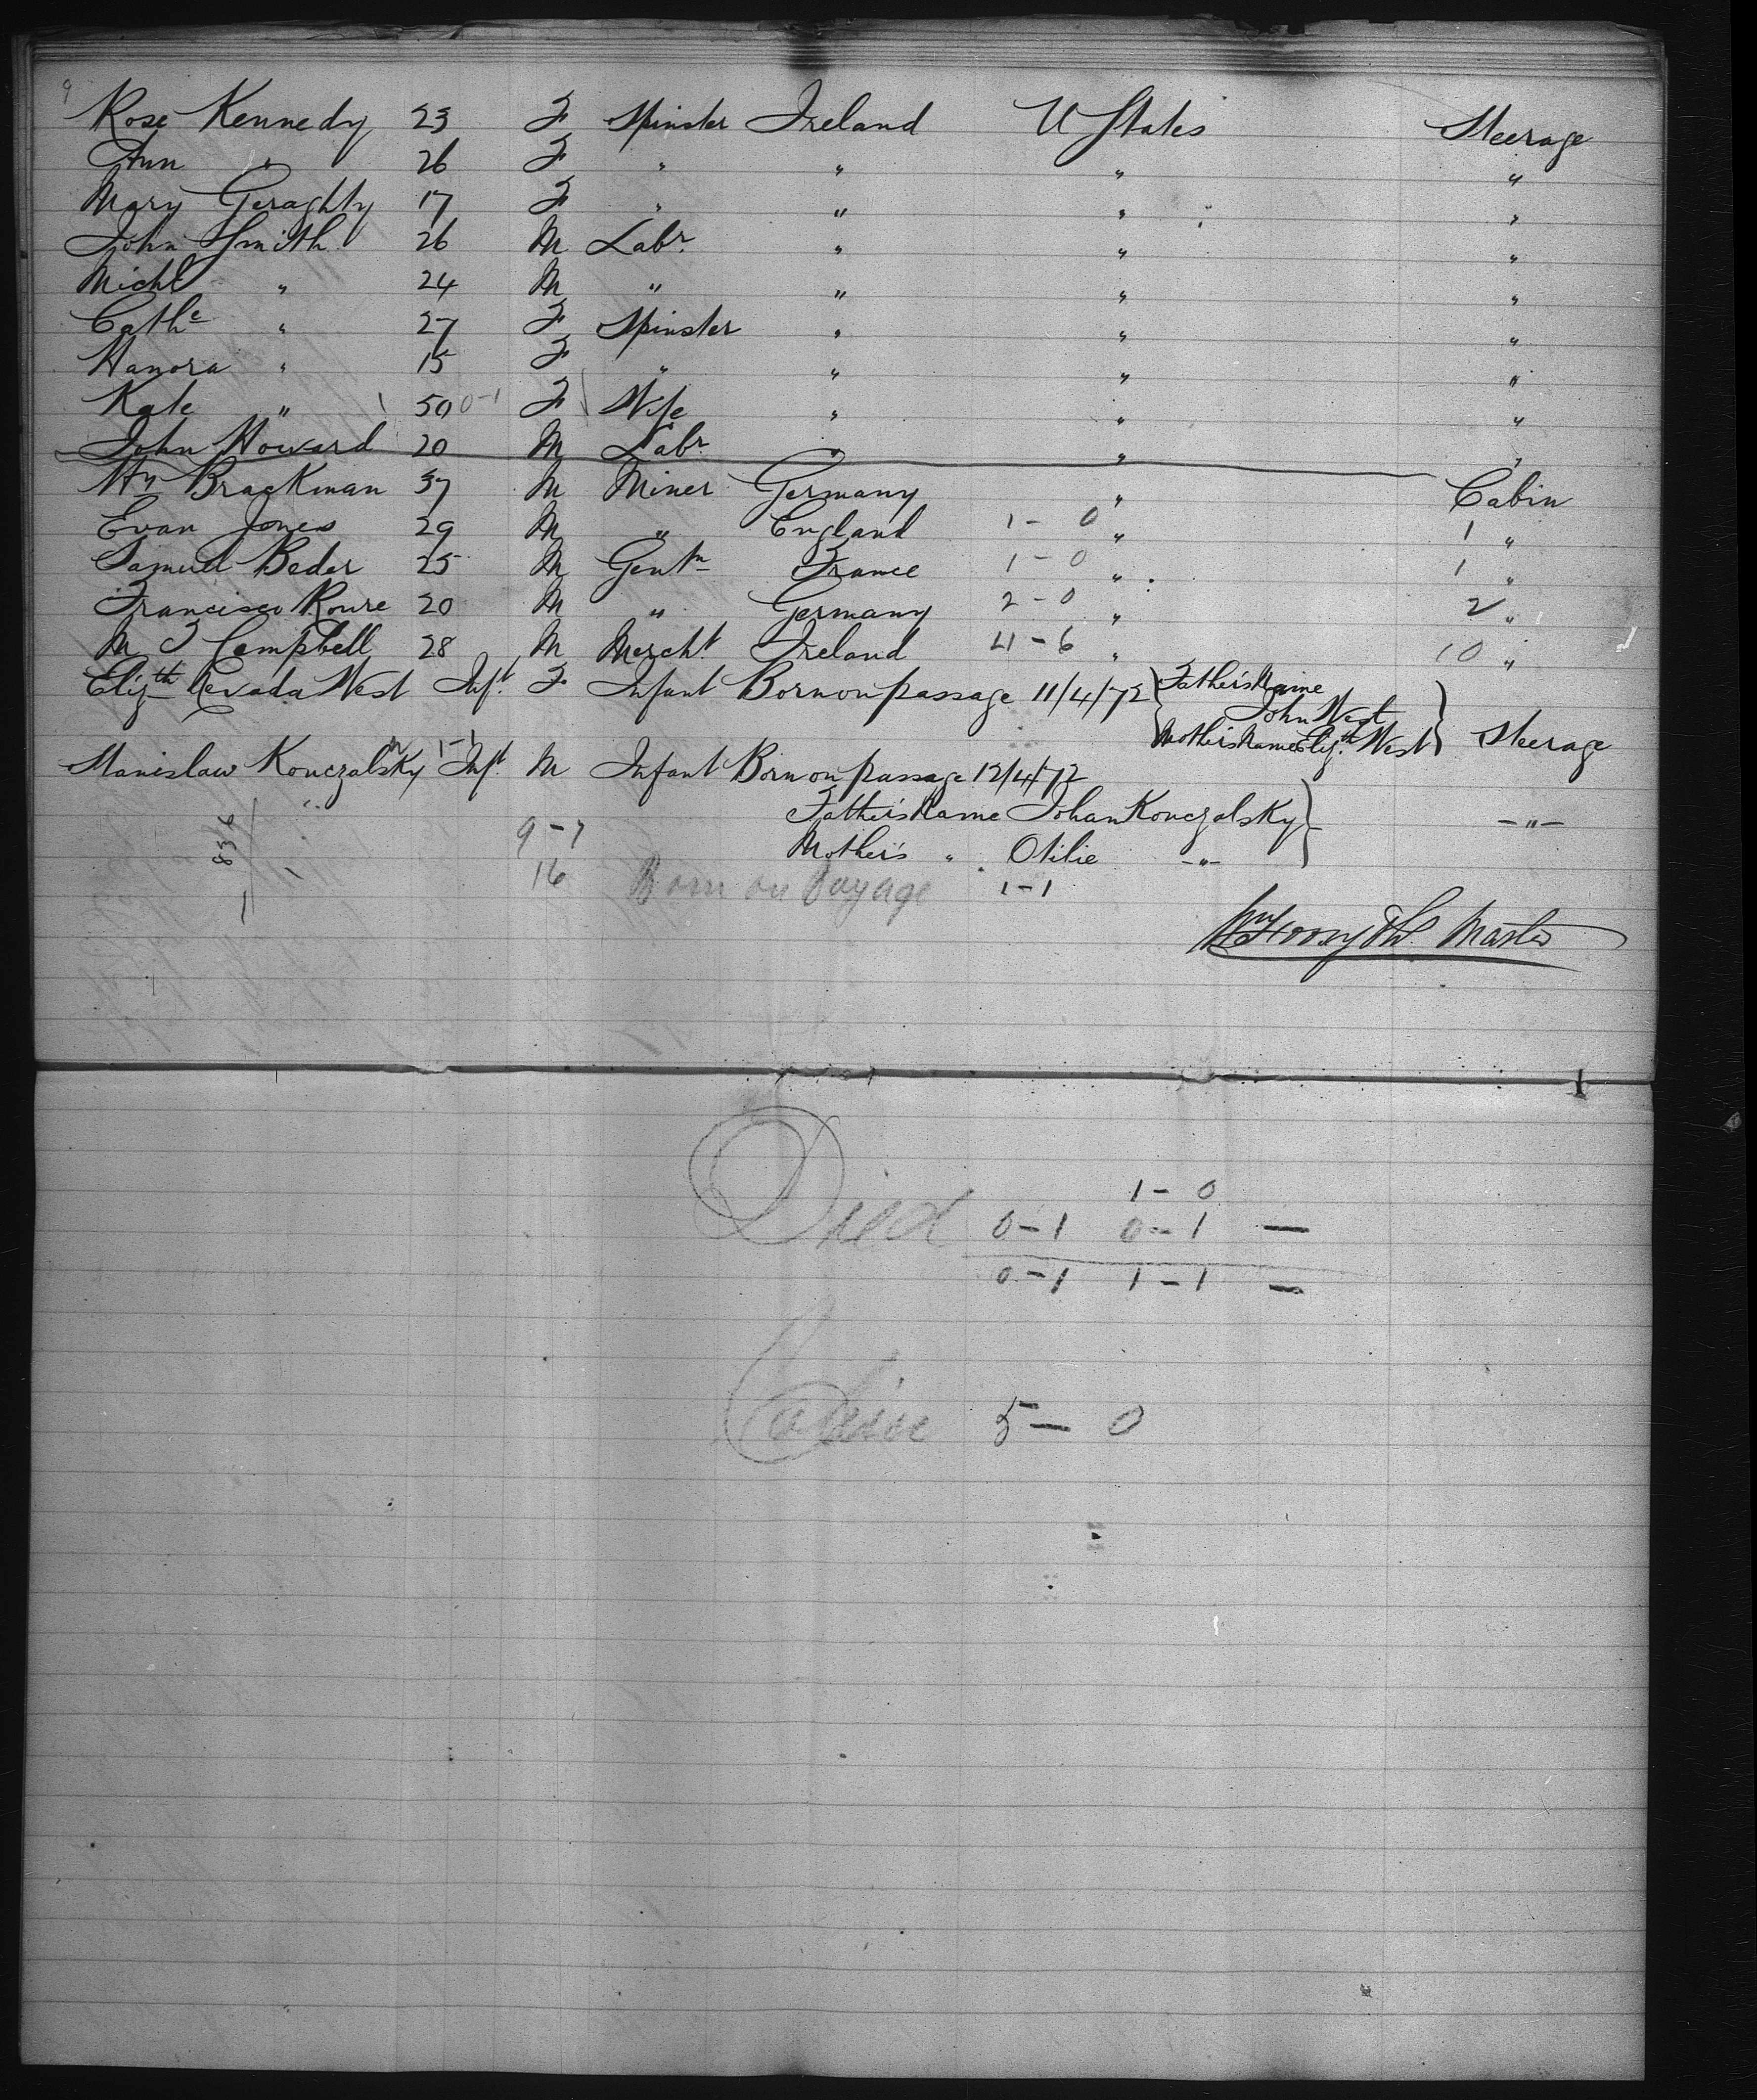 9
Rose Kennedy 23 F Spinster Ireland U States Steerage
Ann " 26 F " " " "
Mary Geraghty 17 F " " " "
John Smith 26 M Labr. " " "
Michl " 24 M " " " "
Cathe " 27 F Spinster " " "
Hanora " 15 F " " " "
Kate " 50 0-1 F Wife " " "
John Howard 20 M Labr. " " "
Wm Brackman 37 M Miner Germany " Cabin
Evan Jones 29 M " England 1 - 0 " 1 "
Samuel Beder 25 M Gentn France 1 - 0 " 1 "
Francisco Roure 20 M " Germany 2 - 0 " 2 "
M J Campbell 28 M Mercht. Ireland 4 - 6 " 10 "
Elizth Nevada West Inft. F Infant Born on passage 11/4/72 } Father's Name
John West
Mother's Name Elizth West } Steerage
Stanislaw Konczalsky 1-1 Inft. M Infant Born on passage 12/4/72
Father's Name Johan Konczalsky } - " -
836
9 - 7 Mother's " Otilie - " -
16 Born on Voyage 1 - 1
Wm Forsyth. Master
1 - 0
Died 0 - 1 0 - 1 —
0 - 1 1 - 1 —
5 — 0